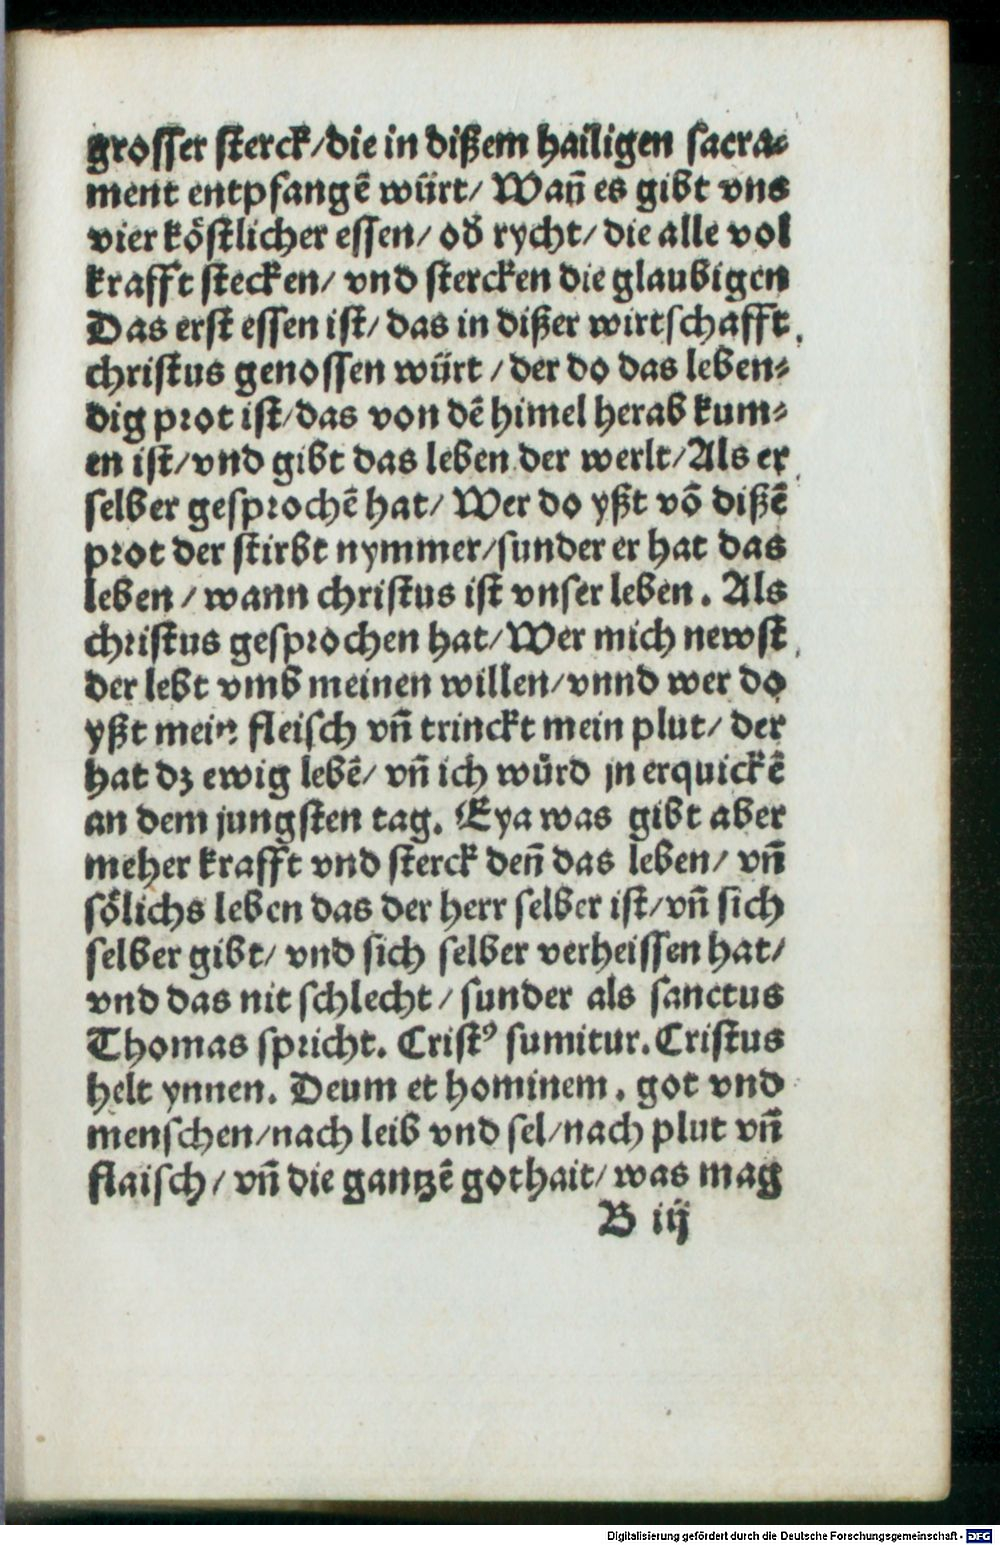 grosser sterck/die in dißem hailigen sacra⸗
ment entpfangē würt/ Wañ es gibt vns
vier köstlicher essen/ od̕ rycht/ die alle vol
krafft stecken/ vnd stercken die glaubigen
Das erst essen ist/ das in dißer wirtschafft
christus genossen würt /der do das leben⸗
dig prot ist/das von dē himel herab kum⸗
en ist/vnd gibt das leben der werlt/Als er
selber gesprochē hat/ Wer do yßt vō dißē
prot der stirbt nymmer/sunder er hat das
leben /wann christus ist vnser leben. Als
christus gesprochen hat/Wer mich newst
der lebt vmb meinen willen/vnnd wer do
yßt mein fleisch vñ trinckt mein plut/ der
hat dz ewig lebē/ vñ ich würd jn erquickē
an dem jungsten tag. Eya was gibt aber
meher krafft vnd sterck deñ das leben/ vñ
sölichs leben das der herr selber ist/vñ sich
selber gibt/ vnd sich selber verheissen hat/
vnd das nit schlecht /sunder als sanctus
Thomas spricht. Cristꝰ sumitur.Cristus
helt ynnen. Deum et hominem. got vnd
menschen/nach leib vnd sel/nach plut vñ
flaisch/ vñ die gantzē gothait/was mag
B iij
Digitalisierung gefördert durch die Deutsche Forschungsgemeinschaft - DFG